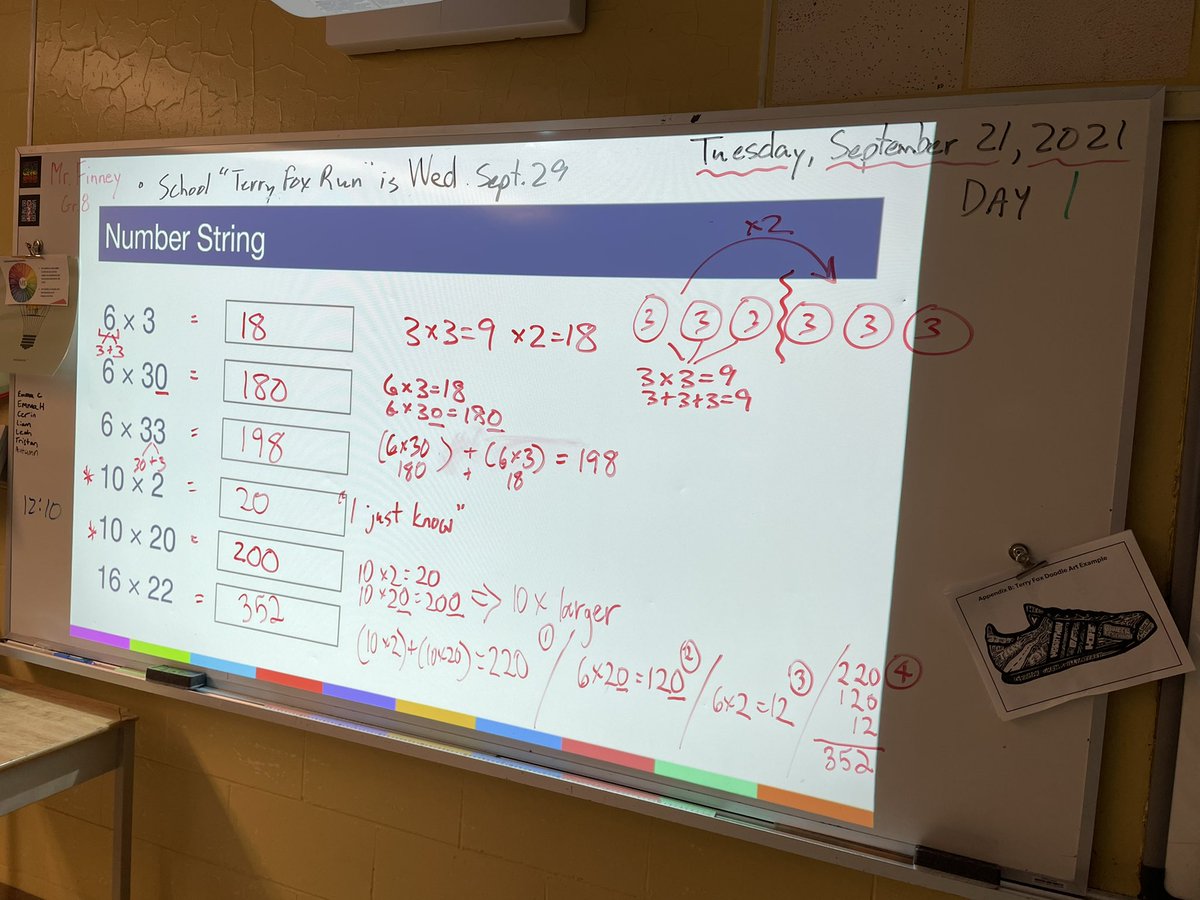 Tuesday, September 21, 2021
DAY 1
Mr. Finney
Gr. 8
• School "Terry Fox Run" is Wed. Sept. 29
Number String
6 × 3 = 18
3+3
3×3=9 ×2=18
×2
3 3 3 3 3 3
3×3=9
3+3+3=9
6 × 30 = 180
6×3=18
6×30=180
6 × 33 = 198
30+3
(6×30) + (6×3) = 198
180 + 18
* 10 × 2 = 20
"I just know"
* 10 × 20 = 200
10×2=20
10×20=200 => 10× larger
16 × 22 = 352
(10×2)+(10×20)=220 ①
6×20=120 ②
6×2=12 ③
220 ④
120
12
352
Emma C
Emma H
Liam
Leah
Tristan
12:10
Appendix B: Terry Fox Doodle Art Example